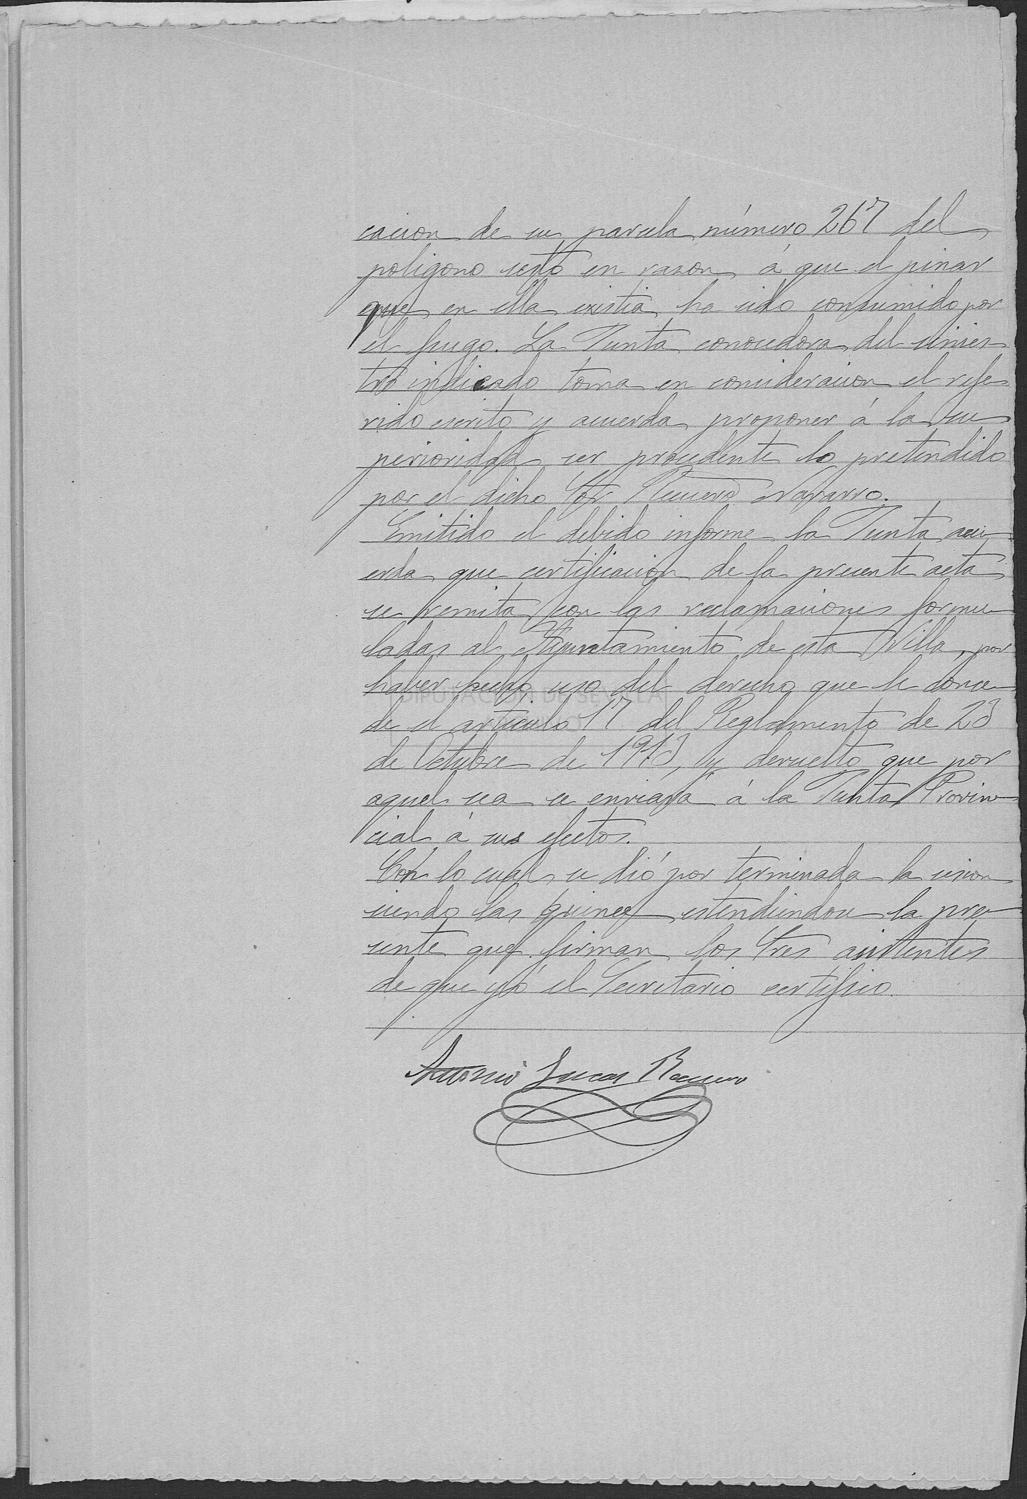 cacion de su parcela número 267 del
poligono sesto en razon á que el pinar
que en ella existia ha sido consumido por
el fuego. La Junta conocedora del sinies
tro indicado toma en consideracion el refe
rido escrito y acuerda proponer á la su
perioridad ser procedente lo pretendido
por el dicho Sor Navarro.
Emitido el debido informe la Junta acu
erda que certificacion de la presente acta
se remita con las reclamaciones formu
ladas al Ayuntamiento de esta Villa, por
haber hecho uso del derecho que le conce
DIPUTACIÓN DE SEVILLA
de el articulo 17 del Reglamento de 23
de Octubre de 1913, y devuelto que por
aquel sea se enviará á la Junta Provin
cial á sus efectos.
Con lo cual se dió por terminada la sesion
siendo las quince estendiendose la pre
sente que firman los Sres asistentes
de que yó el Secretario certifico.
Antonio Lucas Romero